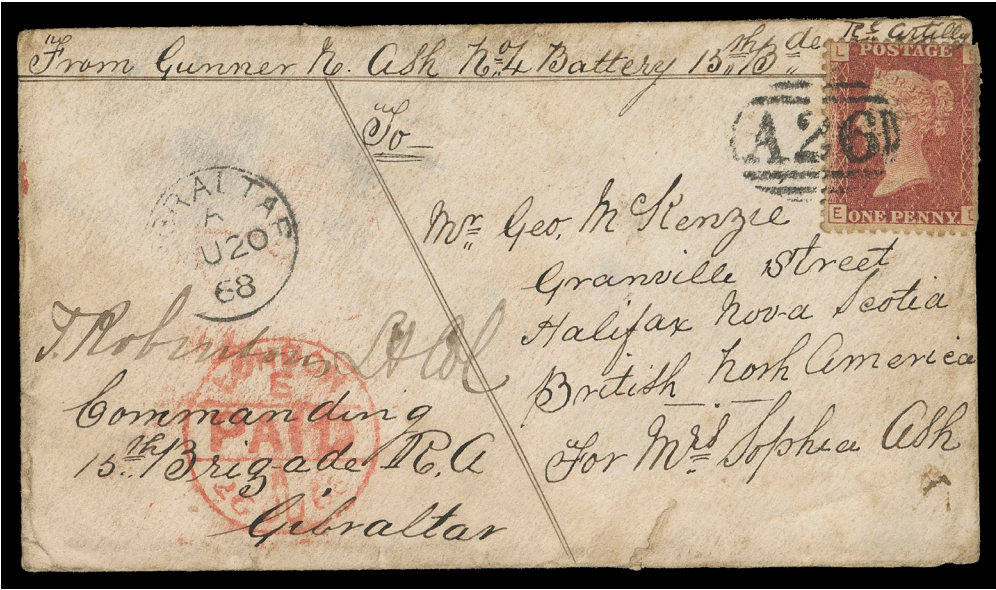 From Gunner N. Ash No. 4 Battery 15th B.de Rl. Artilly
L POSTAGE E
A26
E ONE PENNY L
To
GIBRALTAR
A
U20
68
Mr. Geo. McKenzie
Granville Street
Halifax Nova Scotia
British North America
For Mrs Sophia Ash
Lt Col
Commanding
15th Brigade R.A
Gibraltar
LONDON
E
PAID